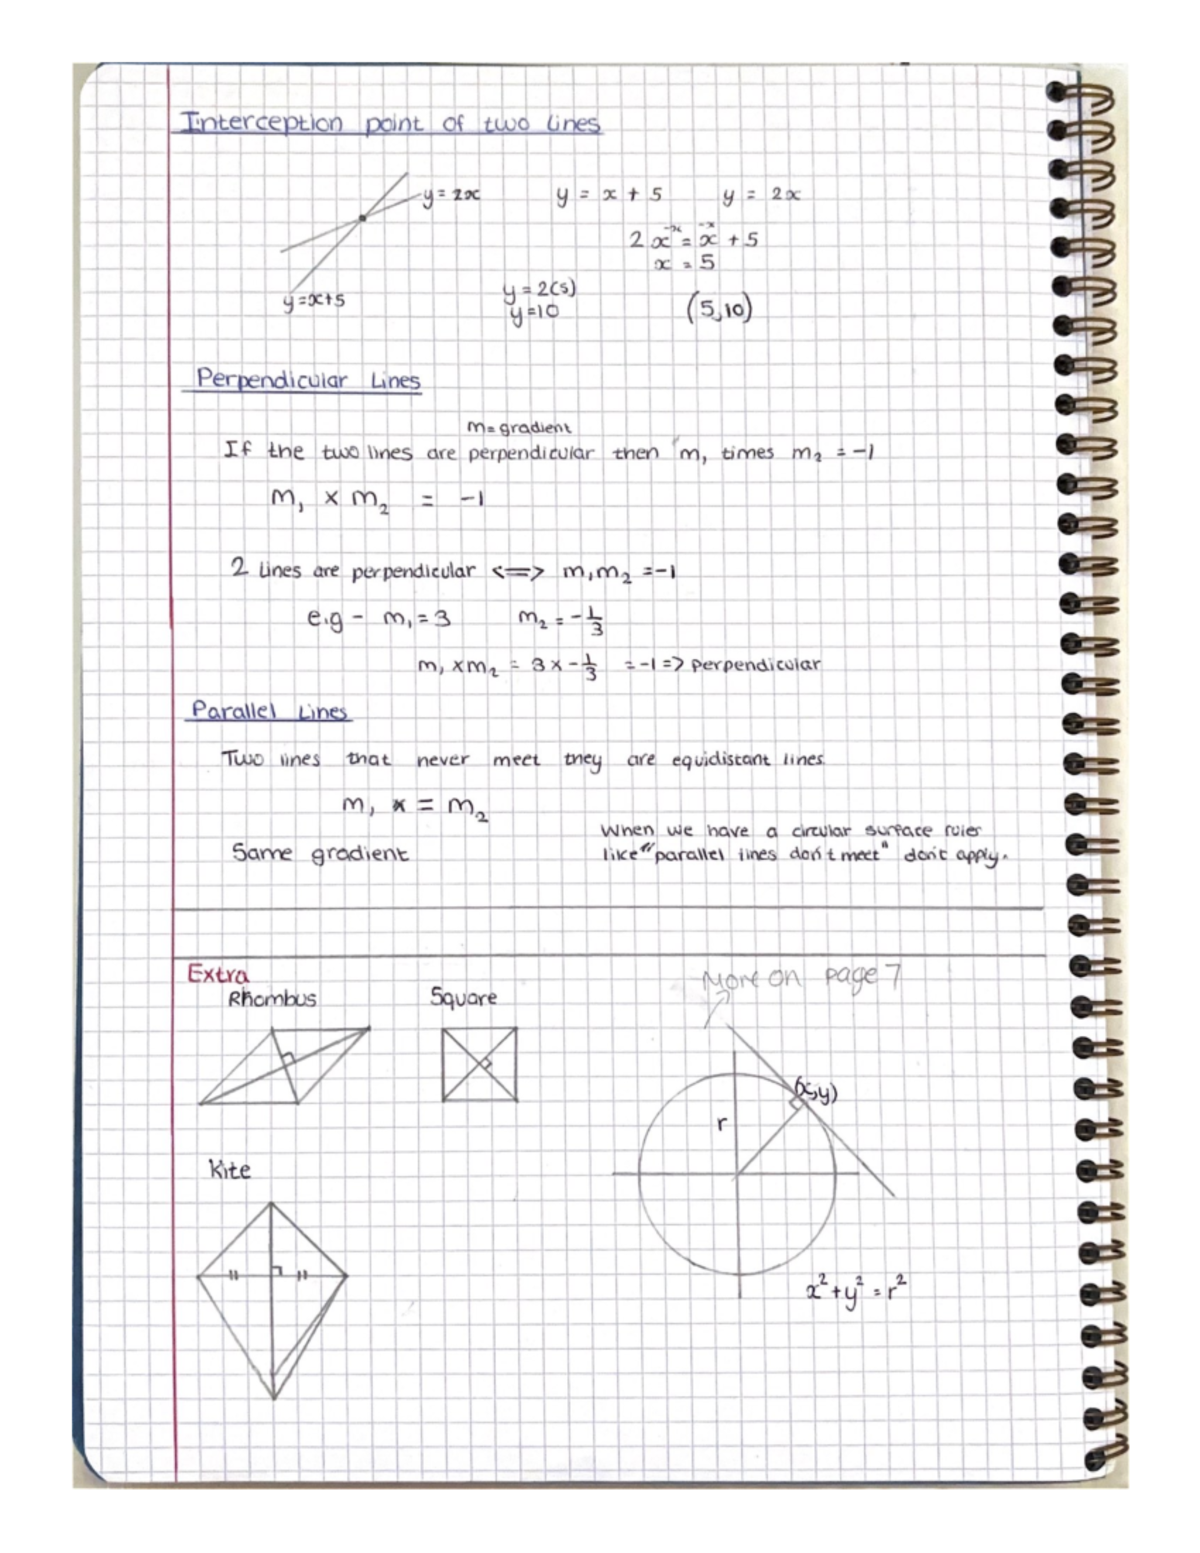 Interception point of two lines
y = 2x
y = x + 5 y = 2x
2x⁻ˣ = x⁻ˣ + 5
x = 5
y=x+5
y = 2(5)
y=10
(5,10)
Perpendicular Lines
m= gradient
If the two lines are perpendicular then m₁ times m₂ = -1
m₁ × m₂ = -1
2 Lines are perpendicular <=> m₁m₂ =-1
e.g - m₁ = 3 m₂ = -1/3
m₁ × m₂ = 3 × -1/3 = -1 => perpendicular
Parallel Lines
Two lines that never meet they are equidistant lines.
m₁ = m₂
Same gradient
When we have a circular surface rules
like "parallel lines don't meet" don't apply.
Extra
More on page 7
Rhombus
Square
(x,y)
r
Kite
x² + y² = r²